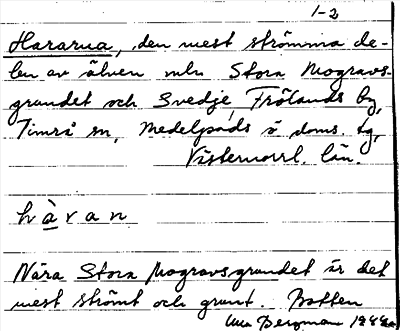 1-2
Hararna, den mest strömma de-
len av älven mln Stora Mogravs-
grundet och Svedje, Frölands by,
Timrå sn, Medelpads ö doms. tg,
Västernorrl. län.
hàvan
Nära Stora Mogravsgrundet är det
mest strömt och grunt. Botten
Bergman